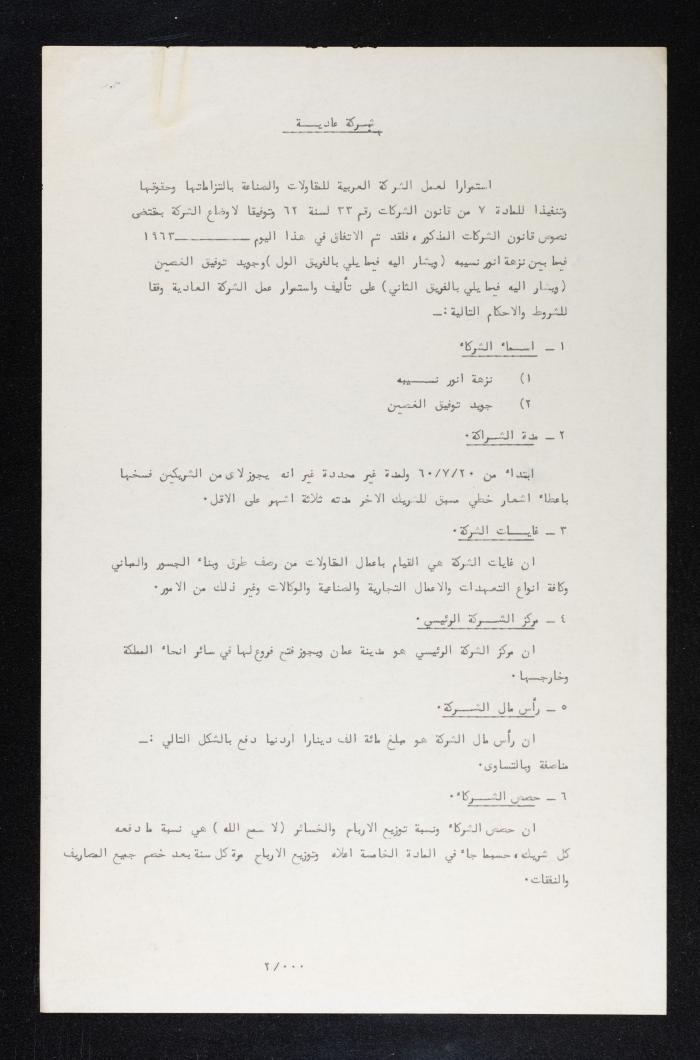 شركة عاديـة
استمرارا لعمل الشركة العربية للمقاولات والصناعة بالتزاماتها وحقوقها
وتنفيذا للمادة ٧ من قانون الشركات رقم ٣٣ لسنة ٦٢ وتوفيقا لاوضاع الشركة بمقتضى
نصوص قانون الشركات المذكور ، فلقد تم الاتفاق في هذا اليوم ـــــــــ ١٩٦٣
فيما بين نزهة انور نسيبه ( ويشار اليه فيما يلي بالفريق الول ) وجويد توفيق الغصين
( ويشار اليه فيما يلي بالفريق الثاني ) على تأليف واستمرار عمل الشركة العادية وفقا
للشروط والاحكام التالية :ـ
١ ـ اسـماء الشركاء
١) نزهة انور نسـيبه
٢) جويد توفيق الغصين
٢ ـ مدة الشـراكة .
ابتداء من ٦٠/٧/٢٠ ولمدة غير محددة غير انه يجوز لاى من الشريكين فسخها
باعطاء اشعار خطي مسبق للشريك الاخر مدته ثلاثة اشهر على الاقل .
٣ ـ غايـات الشركة .
ان غايات الشركة هي القيام باعمال المقاولات من رصف طرق وبناء الجسور والمباني
وكافة انواع التعهدات والاعمال التجارية والصناعية والوكالات وغير ذلك من الامور .
٤ ـ مركز الشـركة الرئيسي .
ان مركز الشركة الرئيسي هو مدينة عمان ويجوز فتح فروع لها في سائر انحاء المملكة
وخارجـها .
٥ ـ رأس مال الشـركة .
ان رأس مال الشركة هو مبلغ مائة الف دينارا اردنيا دفع بالشكل التالي :ـ
مناصفة وبالتساوى .
٦ ـ حصص الشـركاء .
ان حصص الشركاء ونسبة توزيع الارباح والخسائر ( لا سمح الله ) هي نسبة ما دفعه
كل شريك ، حسبما جاء في المادة الخامسة اعلاه وتوزيع الارباح مرة كل سنة بعد خصم جميع المصاريف
والنفقات .
٢/٠٠٠